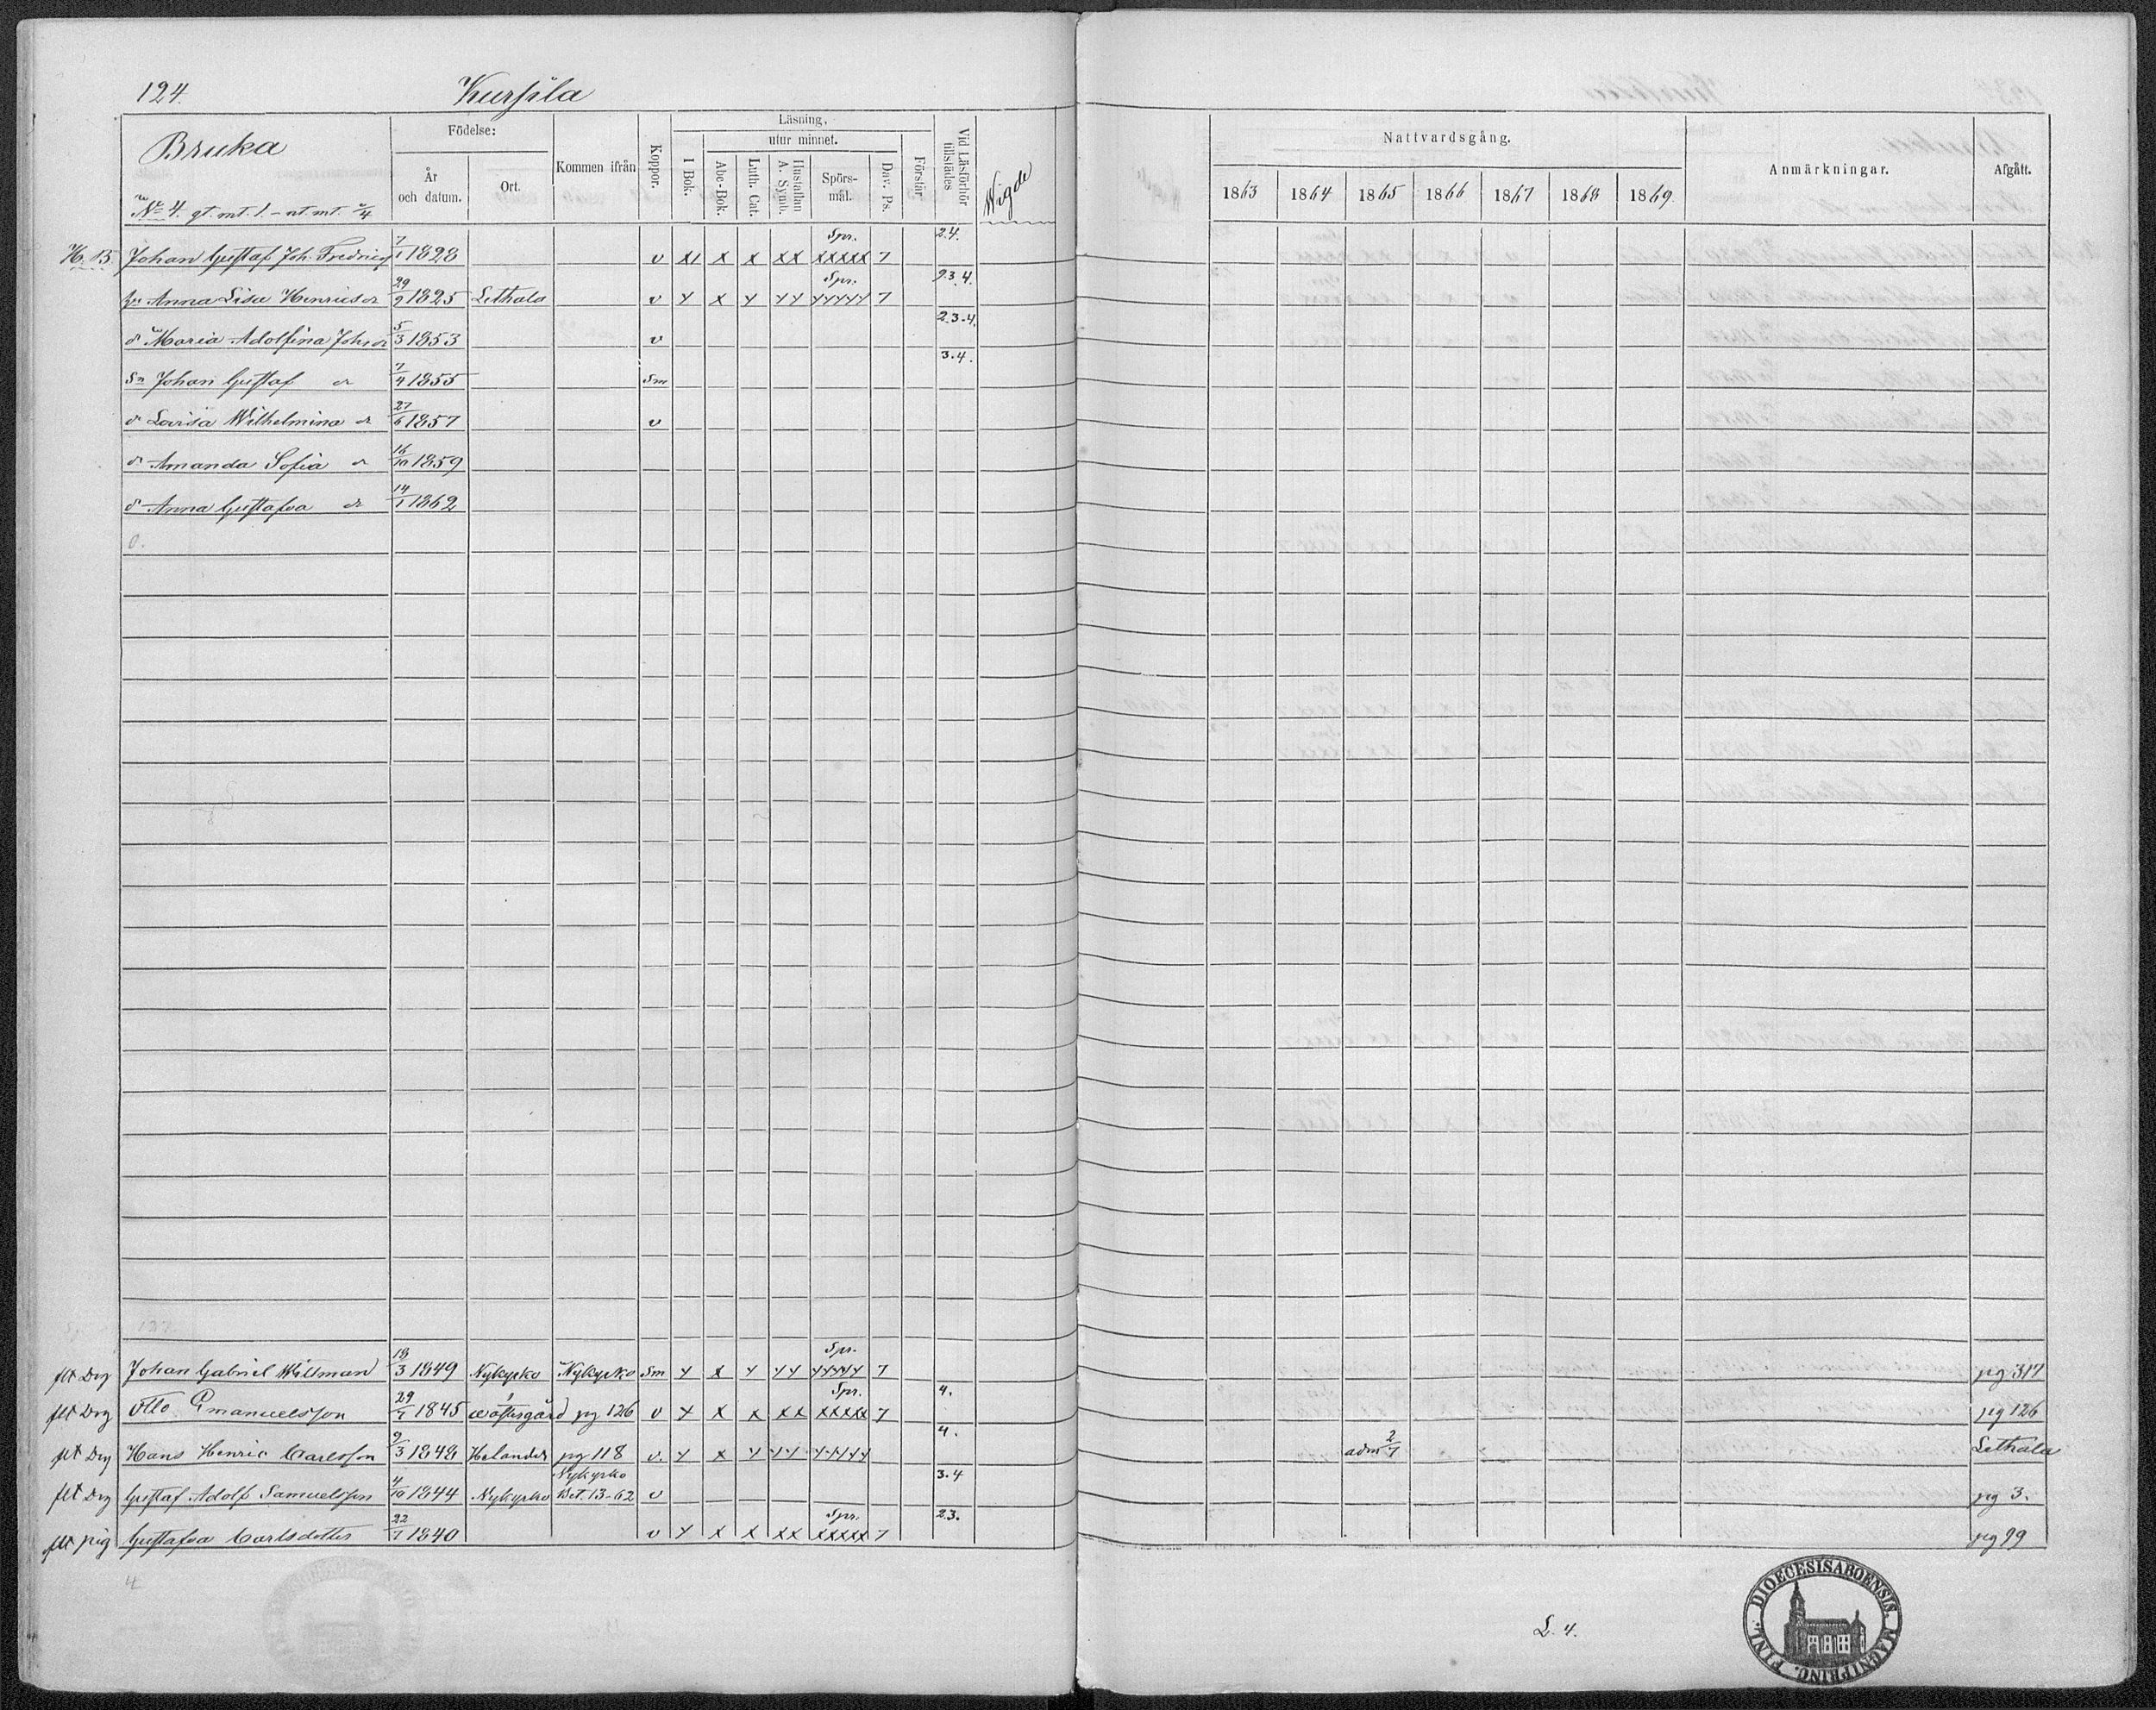 124. Kursila
Bruka
No 4. gt. mt. 1. – nt. mt. 3/4
Födelse:
År och datum.
Ort.
Kommen ifrån
Koppor.
Läsning,
utur minnet.
I Bok.
Abc-Bok.
Luth. Cat.
Hustaflan A. Symb.
Spörs-mål.
Dav. Ps.
Förstår
Vid Läsförhör tillstädes
Wigde
Nattvardsgång.
1863 1864 1865 1866 1867 1868 1869.
Anmärkningar.
Afgått.
H. B. Johan Gustaf Joh. Fredrics 7/1 1828 v xı x x xx Spr. xxxxx 7 2.4.
hu Anna Lisa Henricsdr 29/9 1825 Lethala v x x x xx Spr. xxxxx 7 2.3.4.
dr Maria Adolfina Johsdr 5/3 1853 v 2.3.4.
Sn Johan Gustaf dr 7/4 1855 Sm 3.4.
dr Lovisa Wilhelmina dr 27/6 1857 v
dr Amanda Sofia dr 16/10 1859
dr Anna Gustafva dr 14/1 1862
flt Drg Johan Gabriel Wilsman 18/3 1849 Nykyrko Nykyrko Sm x x x xx Spr. xxxxx 7 pg 317
flt Drg Otto Emanuelsson 29/7 1845 pg 126 v x x x xx Spr. xxxxx 7 4. pg 126
flt Drg Hans Henric Carlsson 9/3 1848 Helander pg 118 v. x x x xx xxxxx 4. adm 2/7 Lethala
flt Drg Gustaf Adolf Samuelsson 4/10 1844 Nykyrko Nykyrko Bet. 13-62 v 3.4 pg 3.
flt pig Gustafva Carlsdotter 22/7 1840 v x x x xx Spr. xxxxx 7 2.3. pg 99
4
L. 4.
DIOECESIS ABOENSIS. MAGNI PRINC. FINL.